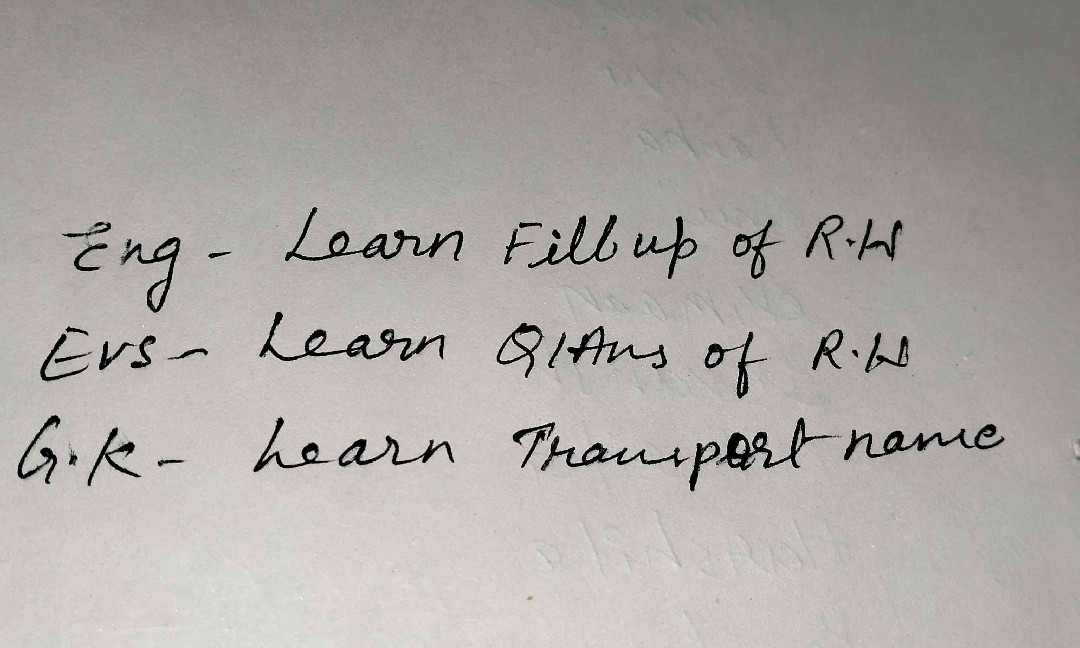 Eng - Learn Fill up of R.W
Evs - Learn Q/Ans of R.W
G.K - Learn Transport name